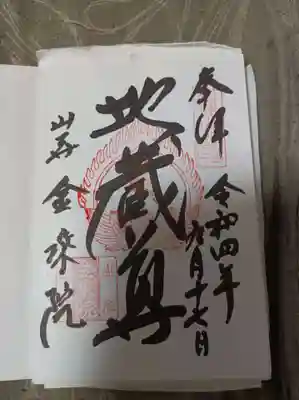 奉拝
令和四年
九月十七日
地蔵尊
山寺
金乗院